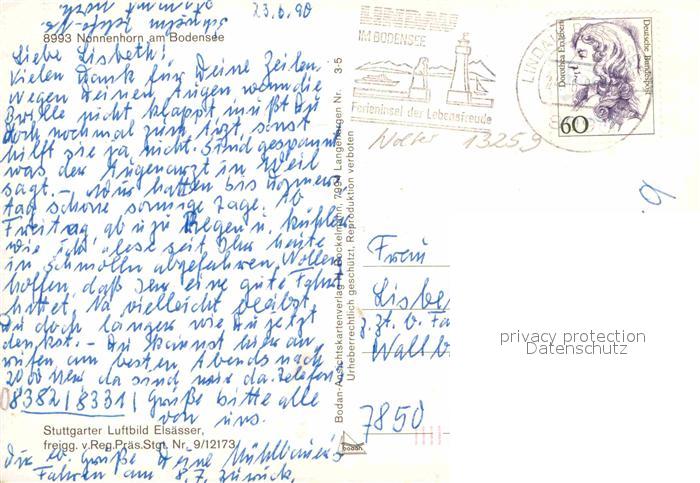 23.6.90
8993 Nonnenhorn am Bodensee
Liebe Lisbeth!
Vielen Dank für Deine Zeilen.
Wegen Deinen Augen wenn die
Brille nicht klappt mußt Du
doch nochmal zum Arzt, sonst
hilft sie ja nicht. Sind gespannt
was der Augenarzt in Weil
sagt. - Wir hatten bis
tag schöne sonnige Tage. Ab
Freitag ab u zu Regen u. kühler
wie ich lese seit Ihr heute
in Schmölln abgefahren. Wollen
hoffen, daß Ihr eine gute Fahrt
hattet. Na vielleicht bleibst
Du doch länger wie Du jetzt
denkst. - Du kannst hier an
rufen am besten Abends nach
20 00 Uhr da sind wir da. Telefon
08382/8331 Grüße bitte alle
von uns.
Stuttgarter Luftbild Elsässer,
freigg. v. Reg.Präs.Stgt. Nr. 9/12173
Grüße Deine Mühlbauer's
Fahren am 8.7. zurück.
Bodan-Ansichtskartenverlag H. Bockelmann, 7994 Langenargen Nr. 3-5
Urheberrechtlich geschützt. Reproduktion verboten
bodan
LINDAU
IM BODENSEE
Ferieninsel der Lebensfreude
LINDAU
Dorothea Erxleben
Deutsche Bundespost
60
Wolter 13259
Frau
Lisbe
z.Zt. b. Fa
Wallb
7850
privacy protection
Datenschutz